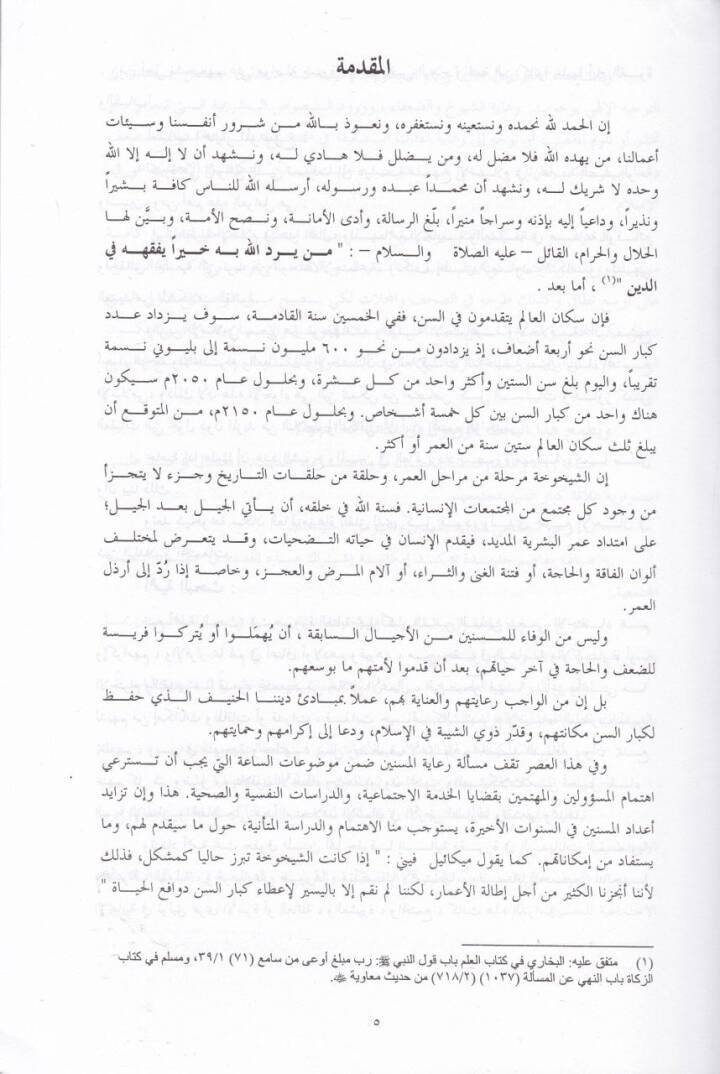 المقدمة
إن الحمد لله نحمده ونستعينه ونستغفره، ونعوذ بالله من شرور أنفسنا وسيئات
أعمالنا، من يهده الله فلا مضل له، ومن يضلل فلا هادي له، ونشهد أن لا إله إلا الله
وحده لا شريك له، ونشهد أن محمدا عبده ورسوله، أرسله الله للناس كافة بشيراً
ونذيراً، وداعياً إليه بإذنه وسراجاً منيراً، بلّغ الرسالة، وأدى الأمانة، ونصح الأمة، وبيَّن لها
الحلال والحرام، القائل – عليه الصلاة والسلام – : " من يرد الله به خيراً يفقهه في
الدين "(١) ، أما بعد .
فإن سكان العالم يتقدمون في السن، ففي الخمسين سنة القادمة، سوف يزداد عدد
كبار السن نحو أربعة أضعاف، إذ يزدادون من نحو ٦٠٠ مليون نسمة إلى بليوني نسمة
تقريباً، واليوم بلغ سن الستين وأكثر واحد من كل عشرة، وبحلول عام ٢٠٥٠م سيكون
هناك واحد من كبار السن بين كل خمسة أشخاص. وبحلول عام ٢١٥٠م، من المتوقع أن
يبلغ ثلث سكان العالم ستين سنة من العمر أو أكثر.
إن الشيخوخة مرحلة من مراحل العمر، وحلقة من حلقات التاريخ وجزء لا يتجزأ
من وجود كل مجتمع من المجتمعات الإنسانية. فسنة الله في خلقه، أن يأتي الجيل بعد الجيل؛
على امتداد عمر البشرية المديد، فيقدم الإنسان في حياته التضحيات، وقد يتعرض لمختلف
ألوان الفاقة والحاجة، أو فتنة الغنى والثراء، أو آلام المرض والعجز، وخاصة إذا رُدّ إلى أرذل
العمر.
وليس من الوفاء للمسنين من الأجيال السابقة ، أن يُهمَلوا أو يُتركوا فريسة
للضعف والحاجة في آخر حياتهم، بعد أن قدموا لأمتهم ما بوسعهم.
بل إن من الواجب رعايتهم والعناية بهم، عملاً بمبادئ ديننا الحنيف الذي حفظ
لكبار السن مكانتهم، وقدّر ذوي الشيبة في الإسلام، ودعا إلى إكرامهم وحمايتهم.
وفي هذا العصر تقف مسألة رعاية المسنين ضمن موضوعات الساعة التي يجب أن تسترعي
اهتمام المسؤولين والمهتمين بقضايا الخدمة الاجتماعية، والدراسات النفسية والصحية. هذا وإن تزايد
أعداد المسنين في السنوات الأخيرة، يستوجب منا الاهتمام والدراسة المتأنية، حول ما سيقدم لهم، وما
يستفاد من إمكاناتهم. كما يقول ميكائيل فيني : " إذا كانت الشيخوخة تبرز حاليا كمشكل، فذلك
لأننا أنجزنا الكثير من أجل إطالة الأعمار، لكننا لم نقم إلا باليسير لإعطاء كبار السن دوافع الحياة "
(١) متفق عليه: البخاري في كتاب العلم باب قول النبي ﷺ: رب مبلغ أوعى من سامع (٧١) ٣٩/١، ومسلم في كتاب
الزكاة باب النهي عن المسألة (١٠٣٧) (٧١٨/٢) من حديث معاوية ﷺ.
٥